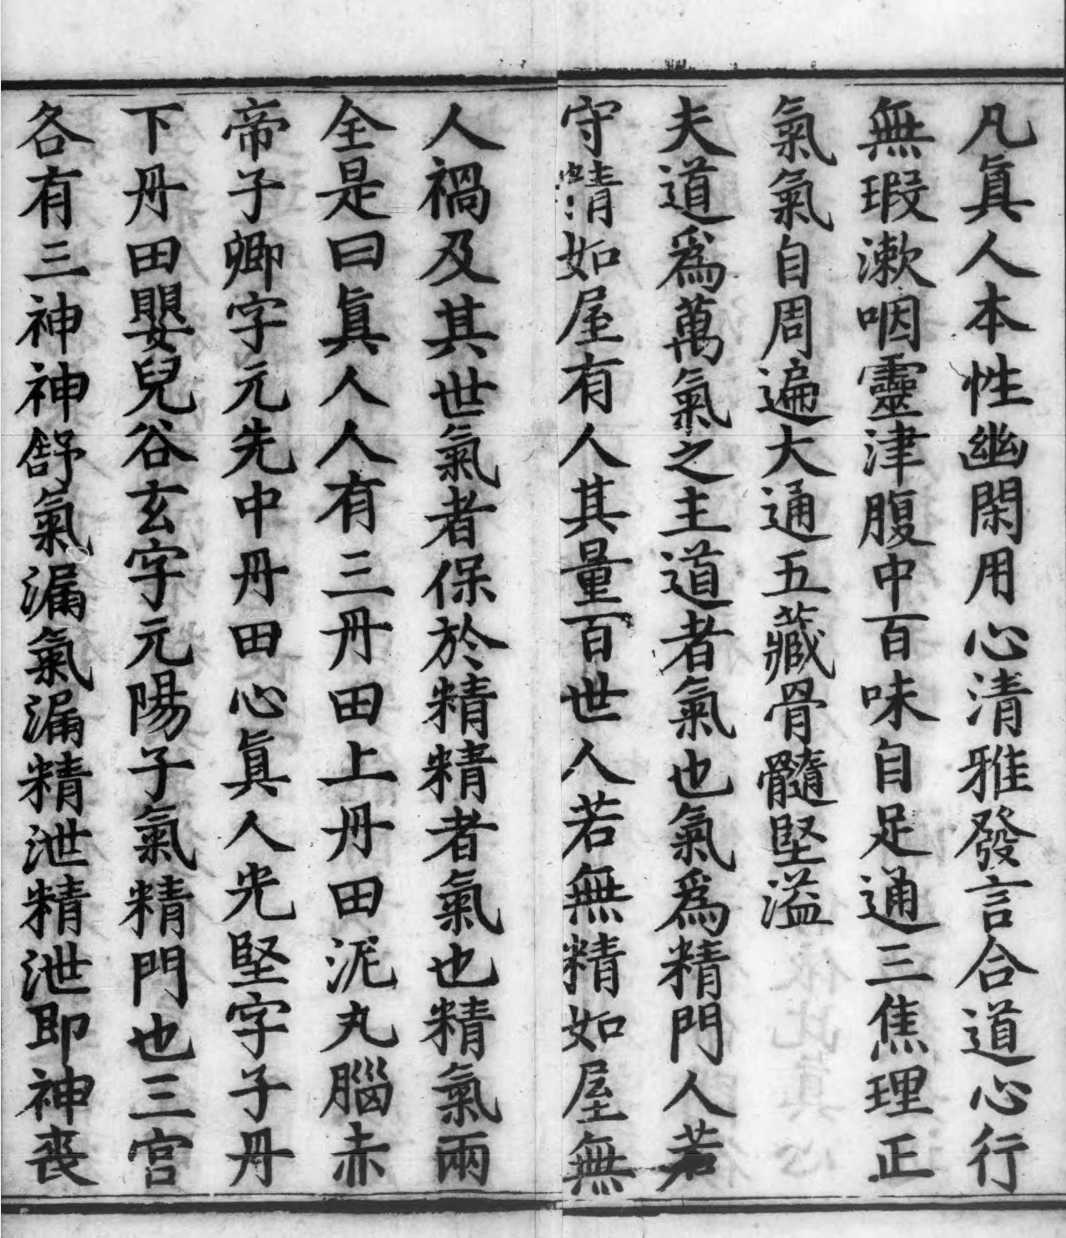 凡眞人本性幽閑用心清雅發言合道心行
無瑕漱咽靈津腹中百味自足通三焦理正
氣氣自周遍大通五藏骨髓堅溢
夫道爲萬氣之主道者氣也氣爲精門人若
守精如屋有人其量百世人若無精如屋無
人禍及其世氣者保於精精者氣也精氣兩
全是曰眞人人有三丹田上丹田泥丸腦赤
帝子卿字元先中丹田心眞人光堅字子丹
下丹田嬰兒谷玄字元陽子氣精門也三宮
各有三神神舒氣漏氣漏精泄精泄即神喪